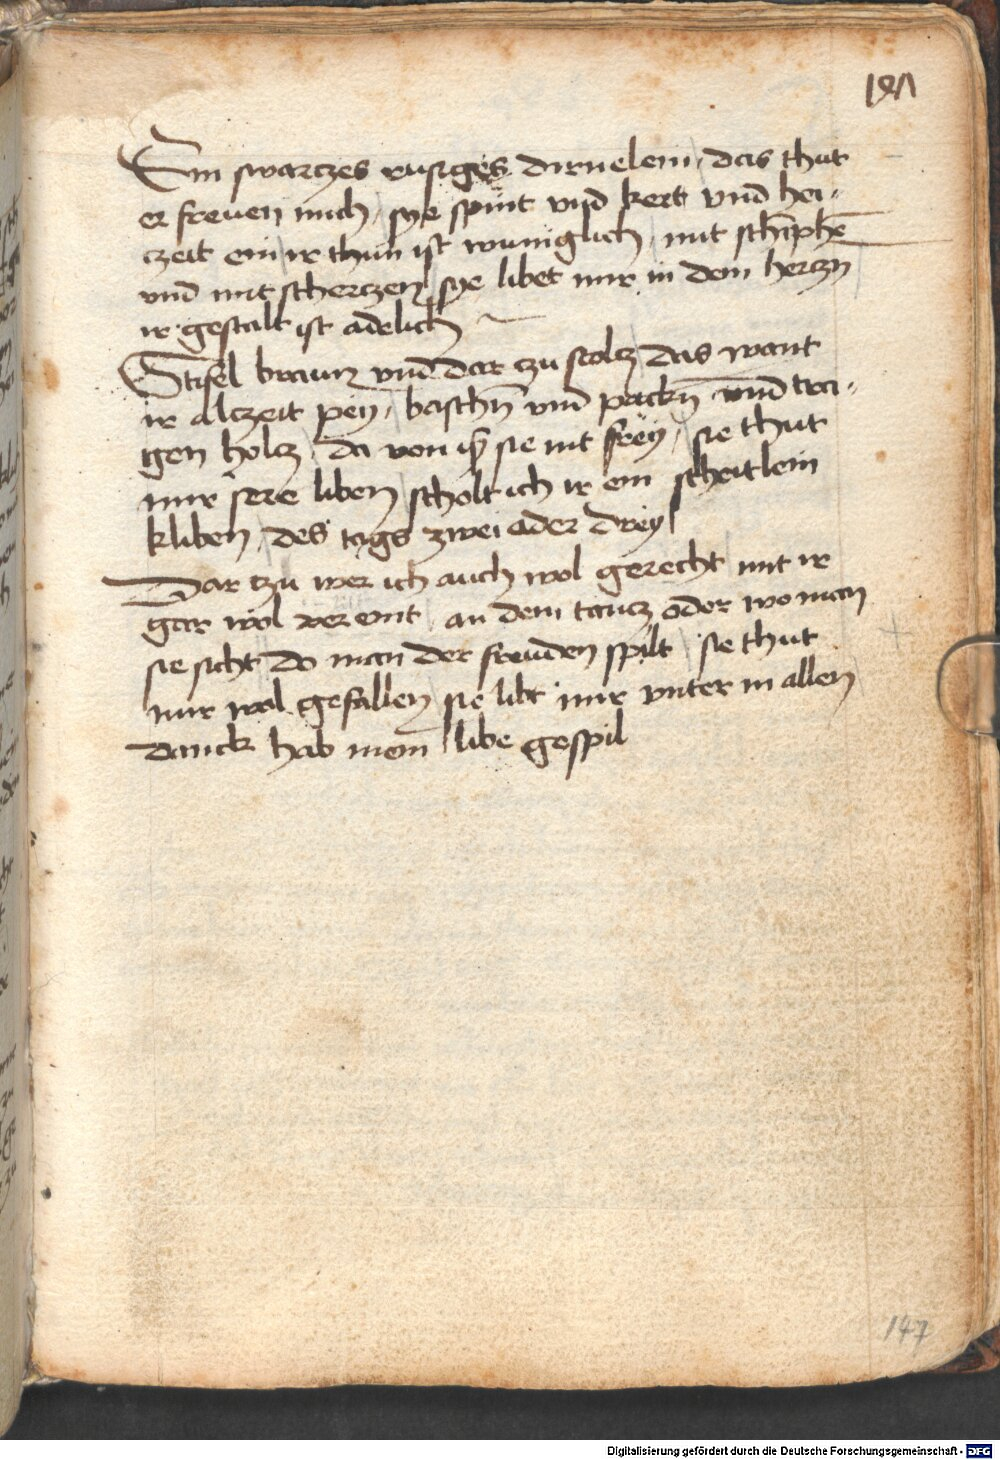 191
Ein swarczes rusiges dirnelein / das thut
er freuen mich / sye spint vnd kert vnd hei-
czeit ein ir thun ist wuniglich / mit schimphē
vnd mit scherczen / sye libet mir in dem herczn
ir gestalt ist adelich
Stifel braun vnd dar czu stolcz das want
ir alczeit pey / baschn̄ vnd packn̄ vnd tra-
gen holcz / da von ist sie nit frey / sie thut
mir sere liben / scholt ich ir ein scheitlein
kliben / des tags zwei ader drey
Dar tzu wer ich auch wol gerecht mit ir
gar wol vereint / an dem tancz oder wo man
sie sicht do man der freuden spilt / sie thut
mir wol gefallen sie libt mir vnter in allen
danck hab mein libe gespil
147
Digitalisierung gefördert durch die Deutsche Forschungsgemeinschaft - DFG